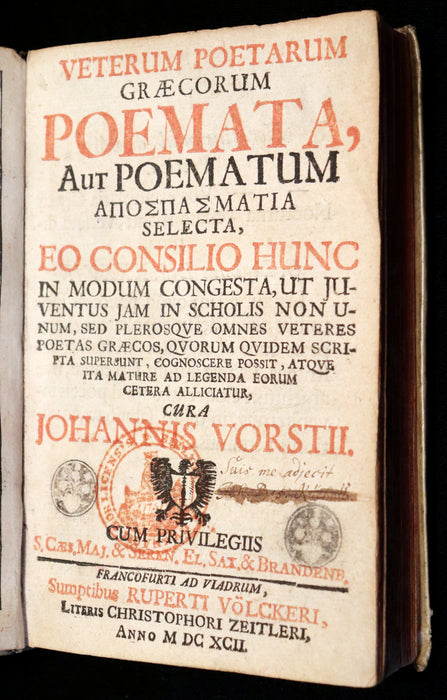 VETERUM POETARUM
GRÆCORUM
POEMATA,
Aut POEMATUM
ΑΠΟΣΠΑΣΜΑΤΙΑ
SELECTA,
EO CONSILIO HUNC
IN MODUM CONGESTA, UT JU-
VENTUS JAM IN SCHOLIS NON U-
NUM, SED PLEROSQVE OMNES VETERES
POETAS GRÆCOS, QVORUM QVIDEM SCRI-
PTA SUPERSUNT, COGNOSCERE POSSIT, ATQVE
ITA MATURE AD LEGENDA EORUM
CETERA ALLICIATUR,
CURA
JOHANNIS VORSTII.
Suis me adjecit
CUM PRIVILEGIIS
S. CÆS. MAJ. & SEREN. EL. SAX. & BRANDENB.
FRANCOFURTI AD VIADRUM,
Sumptibus RUPERTI VÖLCKERI,
LITERIS CHRISTOPHORI ZEITLERI,
ANNO M DC XCII.